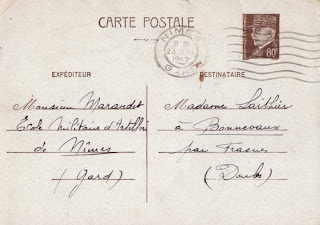 CARTE POSTALE
NIMES
GARD
1942
60c
EXPÉDITEUR
DESTINATAIRE
Monsieur Marandet
École Militaire d'Artillerie
de Nîmes
(Gard)
Madame
à Bonnevaux
par Frasnes
(Doubs)